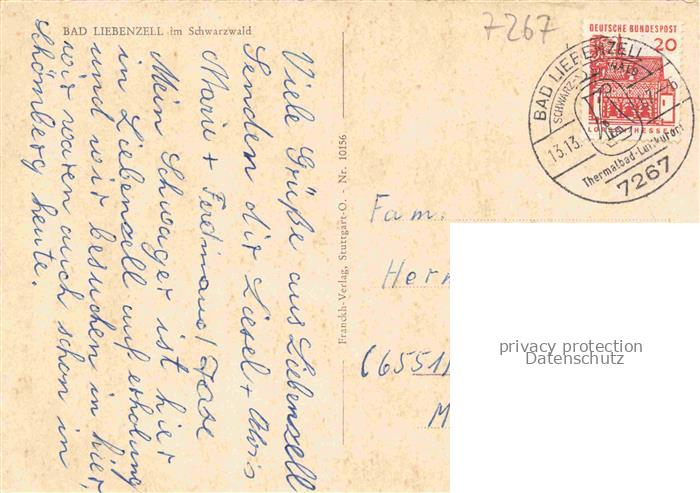 BAD LIEBENZELL im Schwarzwald
Viele Grüße aus Liebenzell
Senden dir Liesel + Alois
Marie + Ferdinand
Mein Schwager ist hier
in Liebenzell auf erholung
und wir besuchen in hier,
wir waren auch schon in
schömberg heute.
Franckh-Verlag, Stuttgart-O. - Nr. 10156
7267
DEUTSCHE BUNDESPOST
20
LORSCH/HESSEN
BAD LIEBENZELL
13.13.
Thermalbad-Luftkurort
7267
Fam.
Herm
(6551)
M
privacy protection
Datenschutz